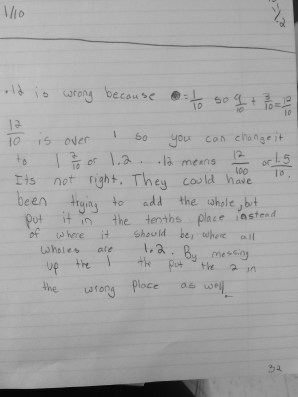 1/10
1/2
.12 is wrong because ●=1/10 so 9/10 + 3/10=12/10
12/10 is over 1 so you can change it
to 1 2/10 or 1.2. .12 means 12/100 or
Its not right. They could have
been trying to add the whole, but
put it in the tenths place instead
of where it should be, where all
wholes are 1.2. By messing
up the 1 the put the 2 in
the wrong place as well.